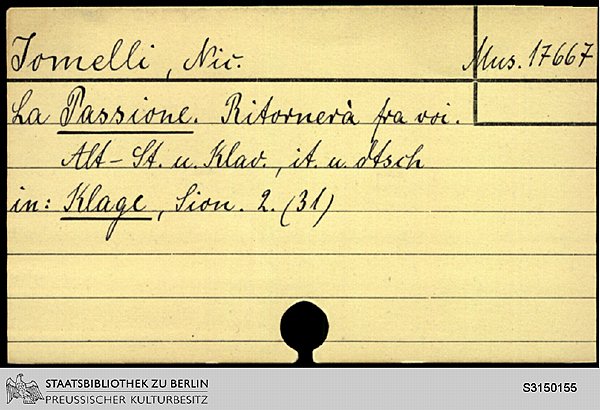 Jomelli, Nic.
Mus. 17667
La Passione. Ritornerà fra voi.
Alt-St. u. Klav., it. u. dtsch
in: Klage, Sion. 2. (31)
STAATSBIBLIOTHEK ZU BERLIN
PREUSSISCHER KULTURBESITZ
S3150155